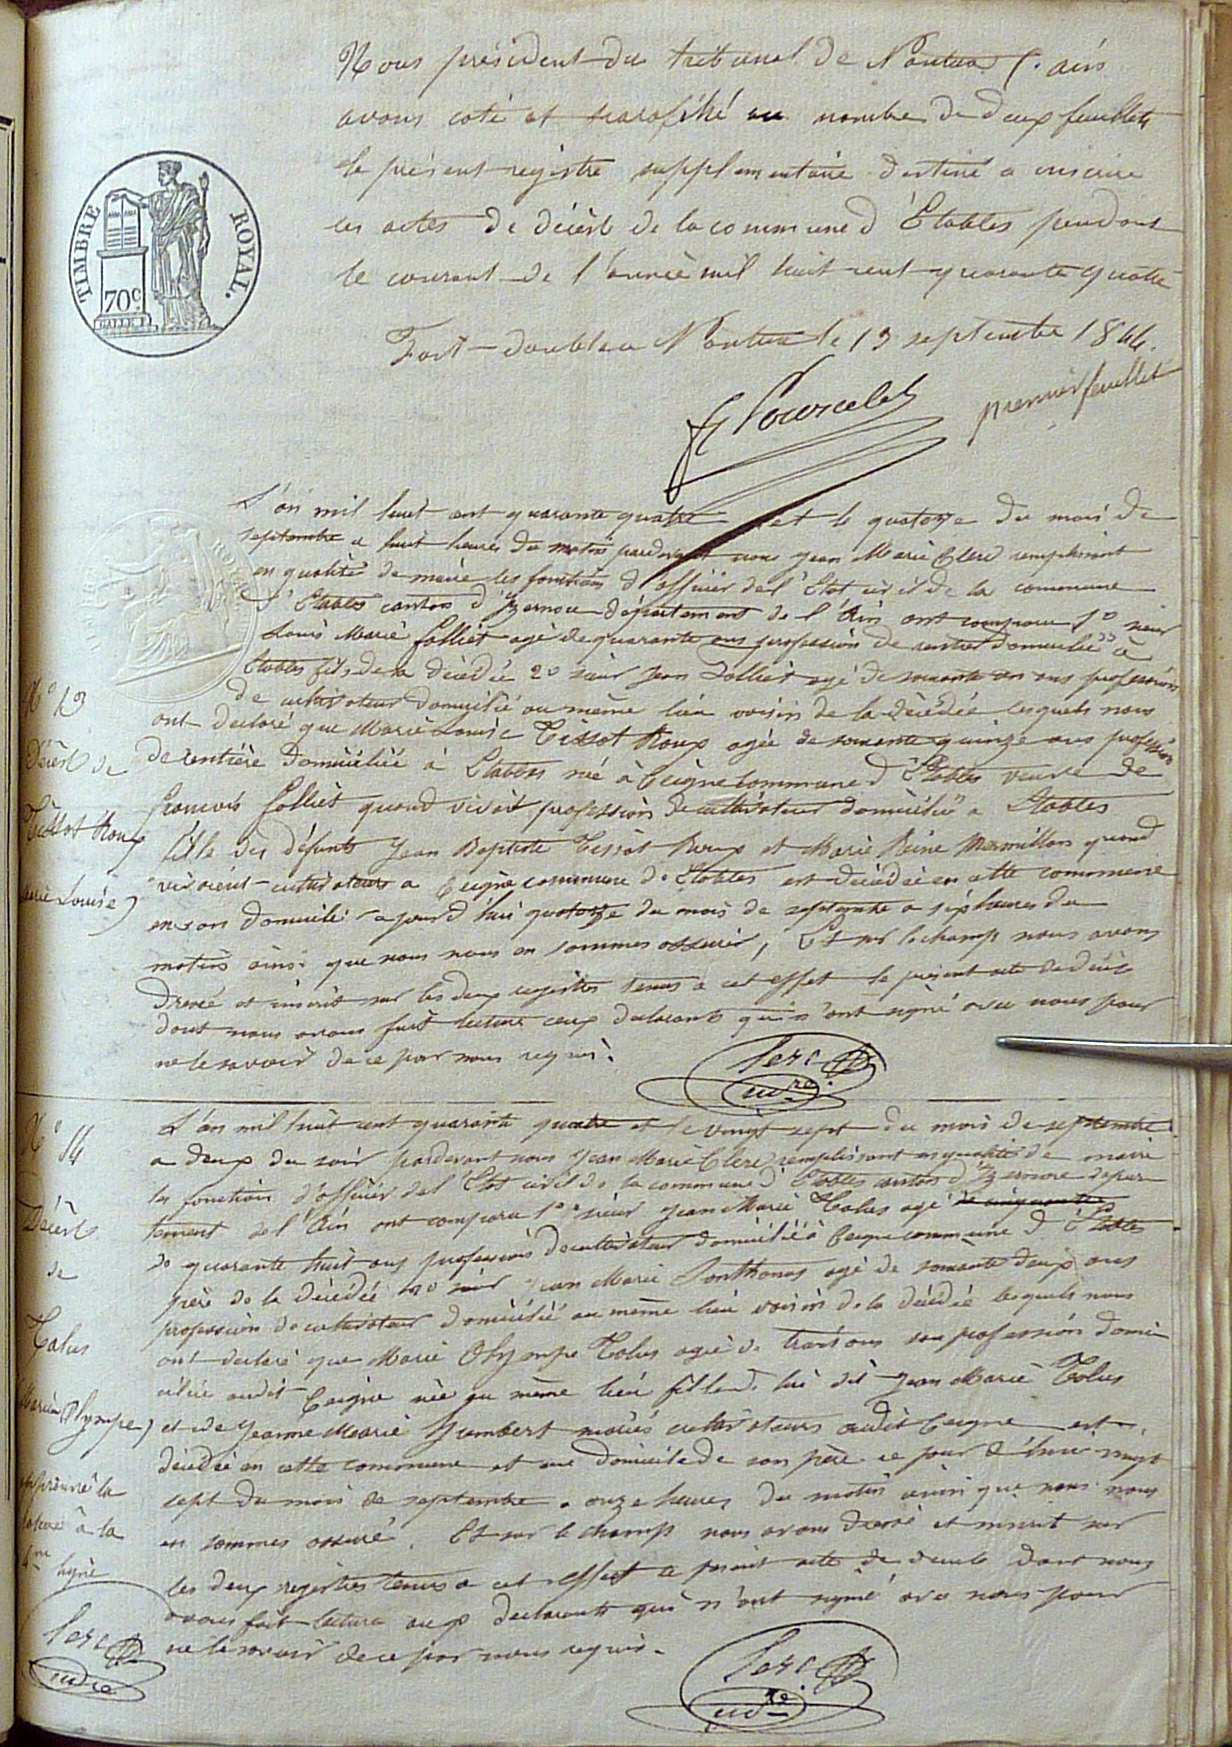 Nous président du tribunal de Nantua (. ain
avons coté et paraphé au nombre de deux feuillets
le présent registre supplementaire destiné a inscrire
les actes de décès de la commune d'Etables pendant
le courant de l'année mil huit cent quarante quatre
TIMBRE ROYAL.
70c
Fait double a Nantua le 13 septembre 1844.
premier feuillet
L'an mil huit cent quarante quatre et le quatorze du mois de
septembre a huit heures du matin pardevant nous Jean Marie Clerc remplissant
en qualité de maire les fonctions d'officier de l'Etat civil de la commune
d'Etables canton d'Izernore département de l'Ain ont comparu 1o sieur
Louis Marie Folliet agé de quarante ans profession de rentier domicilié à
Etables fils de la décédée 2o sieur Jean Folliet agé de soixante ans profession
de cultivateur domicilié au même lieu voisin de la décédée lesquels nous
ont declaré que Marie Louise Tissot Roux agée de soixante quinze ans profession
de rentière domiciliée à Etables née à Ceigne commune d'Etables veuve de
francois Folliet quand vivait profession de cultivateur domicilié a Etables
fille des défunts Jean Baptiste Tissot Roux et Marie Reine Mermillon quand
vivoient cultivateurs a Ceigne commune d'Etables est décédée en cette commune
en son domicile ajourd'hui quatorze du mois de septembre a six heures du
matin ainsi que nous nous en sommes assuré, Et sur lechamp nous avons
Dressé et inscrit sur les deux registres tenus a cet effet le présent acte de décès
dont nous avons fait lecture aux declarants qui n'ont signé avec nous pour
ne le savoir de ce par nous requis.
No 13
Décès de
Tissot Roux
Marie Louise)
Clerc
L'an mil huit cent quarante quatre et le vingt sept du mois de septembre
a deux du soir pardevant nous Jean Marie Clerc remplissant en qualité de maire
les fonctions d'officier del'Etat civil de la commune d'Etables canton d'Izernore depar
tement de l'Ain ont comparu 1o sieur Jean Marie Tolus agé de cinquante
de quarante huit ans profession de cultivateur domicilié à Ceigne commune d'Etables
père de la décédée 2o sieur Jean Marie Ponthonas agé de soixante deux ans
profession de cultivateur domicilié au même lieu voisin de la décédée lesquels nous
ont declaré que Marie Olympe Tolus agée de trois ans sans profession domi
ciliée audit Ceigne née au même lieu fille du dit Jean Marie Tolus
et de Jeanne Marie Humbert mariés cultivateurs audit Ceigne est
décédée en cette commune et au domicile de son père ce jour d'hui vingt
sept du mois de septembre a onze heures du matin ainsi que nous nous
en sommes assuré. Et sur lechamp nous avons dressé et inscrit sur
les deux registres tenus a cet effet le présent acte de décès dont nous
avons fait lecture aux declarants qui n'ont signé avec nous pour
ne le savoir de ce par nous requis.
No 14
Décès
de
Tolus
Marie Olympe)
approuvé la
rature à la
4me ligne
Clerc
Clerc